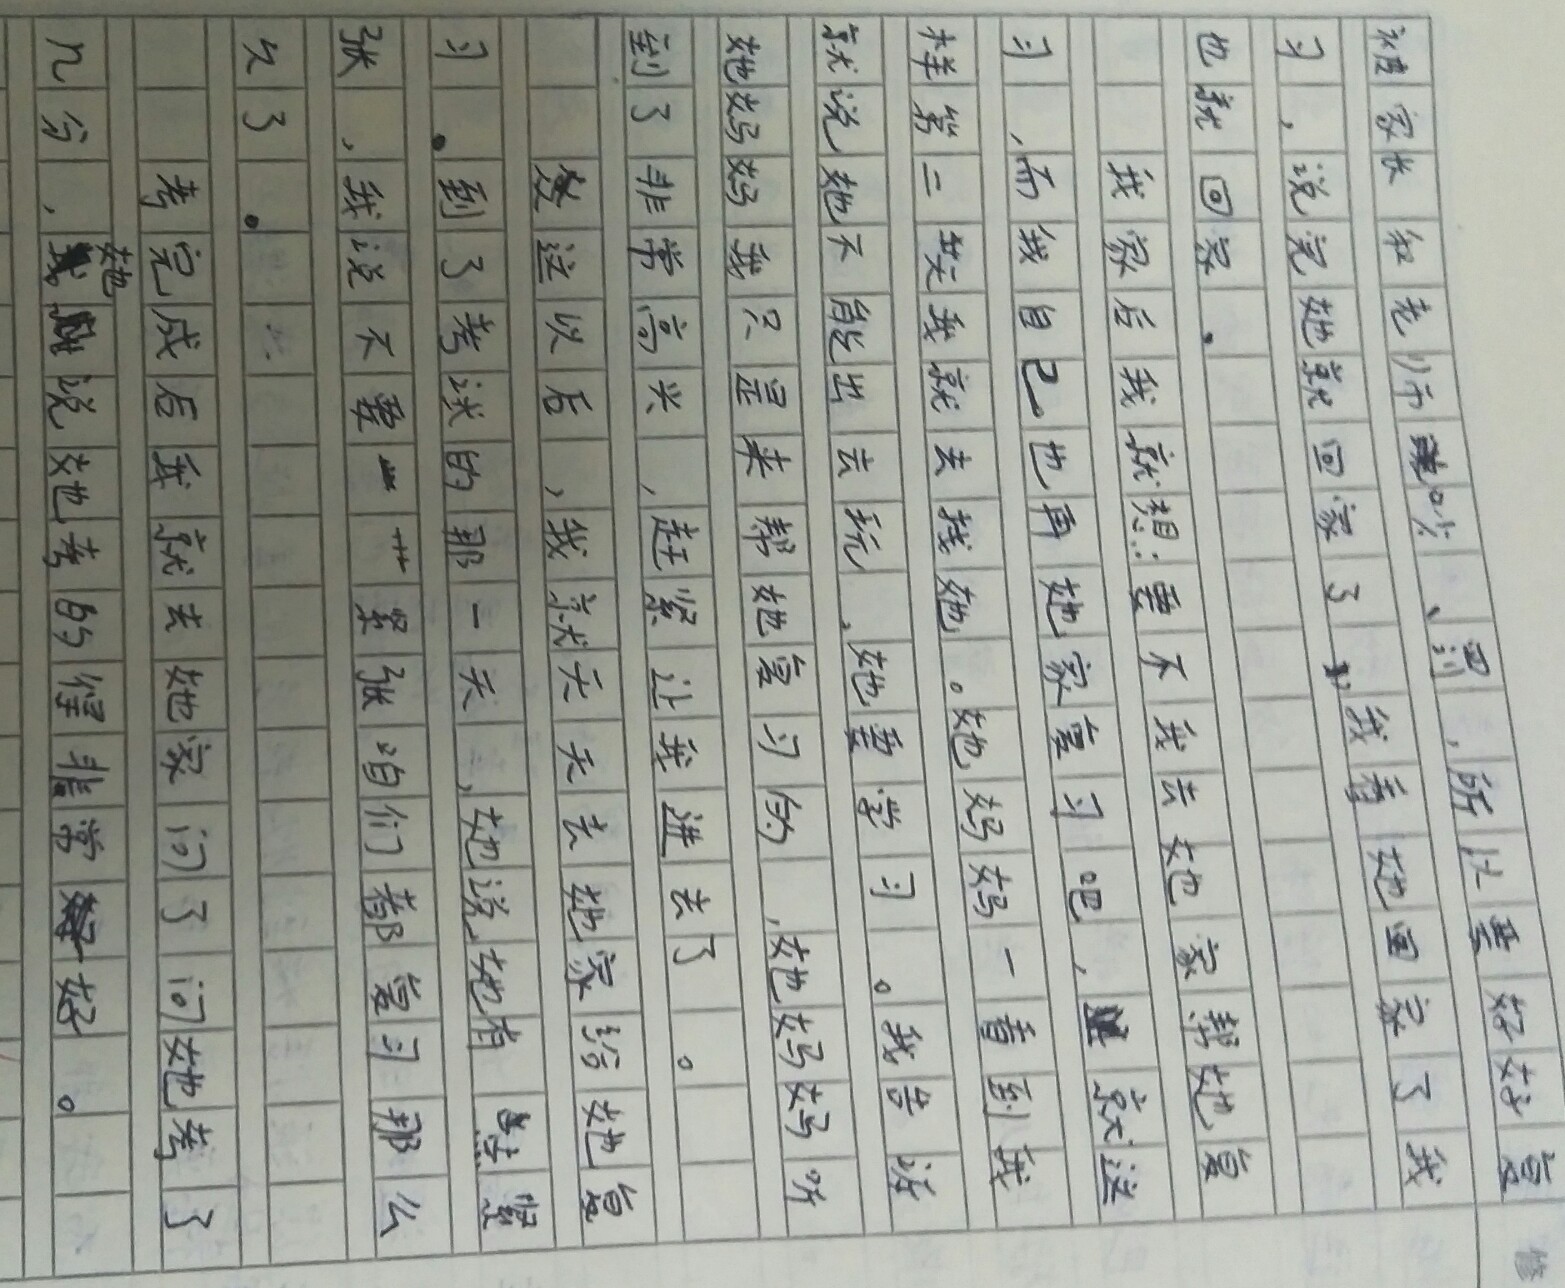 被家长和老师吵、罚，所以要好好复
习，说完她就回家了，我看她回家了我
也就回家。
我家后我就想：要不我去她家帮她复
习，而我自己也再她家复习吧，就这
样第二天我就去找她。她妈妈一看到我
就说她不能出去玩，她要学习。我告诉
她妈妈我只是来帮她复习的，她妈妈听
到了非常高兴，赶紧让我进去了。
这以后，我就天天去她家给她复
习。到了考试的那一天，她说她有紧
张，我说不要紧张咱们都复习那么
久了。
考完成后我就去她家问了问她考了
几分，她说她考的得非常好。